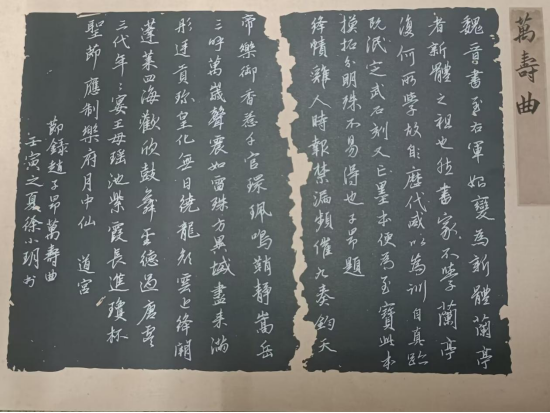 萬壽曲
魏晉書至右軍始變為新體蘭亭
者新體之祖也然書家不學蘭亭
復何所學故能歷代咸以為訓自真跡
既泯定武石刻又亡墨本便為至寶此本
模拓分明殊不易得也子昂題
絳幘雞人時報禁漏頻催九奏鈞天
帝樂御香惹千官環珮鳴鞘靜嵩岳
三呼萬歲聲震如雷殊方異域盡來滿
彤廷貢珍皇化無日繞龍顏雲近絳闕
蓬萊四海歡欣鼓舞至德過唐虞
三代年々宴王母瑤池紫霞長進瓊杯
聖節應制樂府月中仙 道宮
節錄趙子昂萬壽曲
壬寅之夏徐小玥書